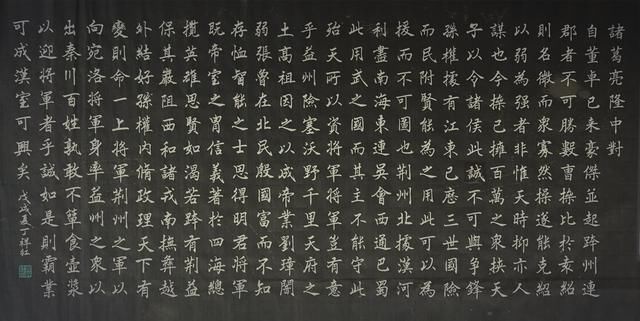 諸葛亮隆中對
自董卓已來豪傑並起跨州連
郡者不可勝數曹操比於袁紹
則名微而眾寡然操遂能克紹
以弱為強者非惟天時抑亦人
謀也今操已擁百萬之眾挾天
子以令諸侯此誠不可與爭鋒
孫權據有江東已歷三世國險
而民附賢能為之用此可以為
援而不可圖也荊州北據漢河
利盡南海東連吳會西通巴蜀
此用武之國而其主不能守此
殆天所以資將軍將軍豈有意
乎益州險塞沃野千里天府之
土高祖因之以成帝業劉璋闇
弱張魯在北民殷國富而不知
存恤智能之士思得明君將軍
既帝室之胄信義著於四海總
攬英雄思賢如渴若跨有荊益
保其巖阻西和諸戎南撫彝越
外結好孫權內脩政理天下有
變則命一上將軍荊州之軍以
向宛洛將軍身率益州之眾以
出秦川百姓孰敢不簞食壺漿
以迎將軍者乎誠如是則霸業
可成漢室可興矣 戊戌 丁祥